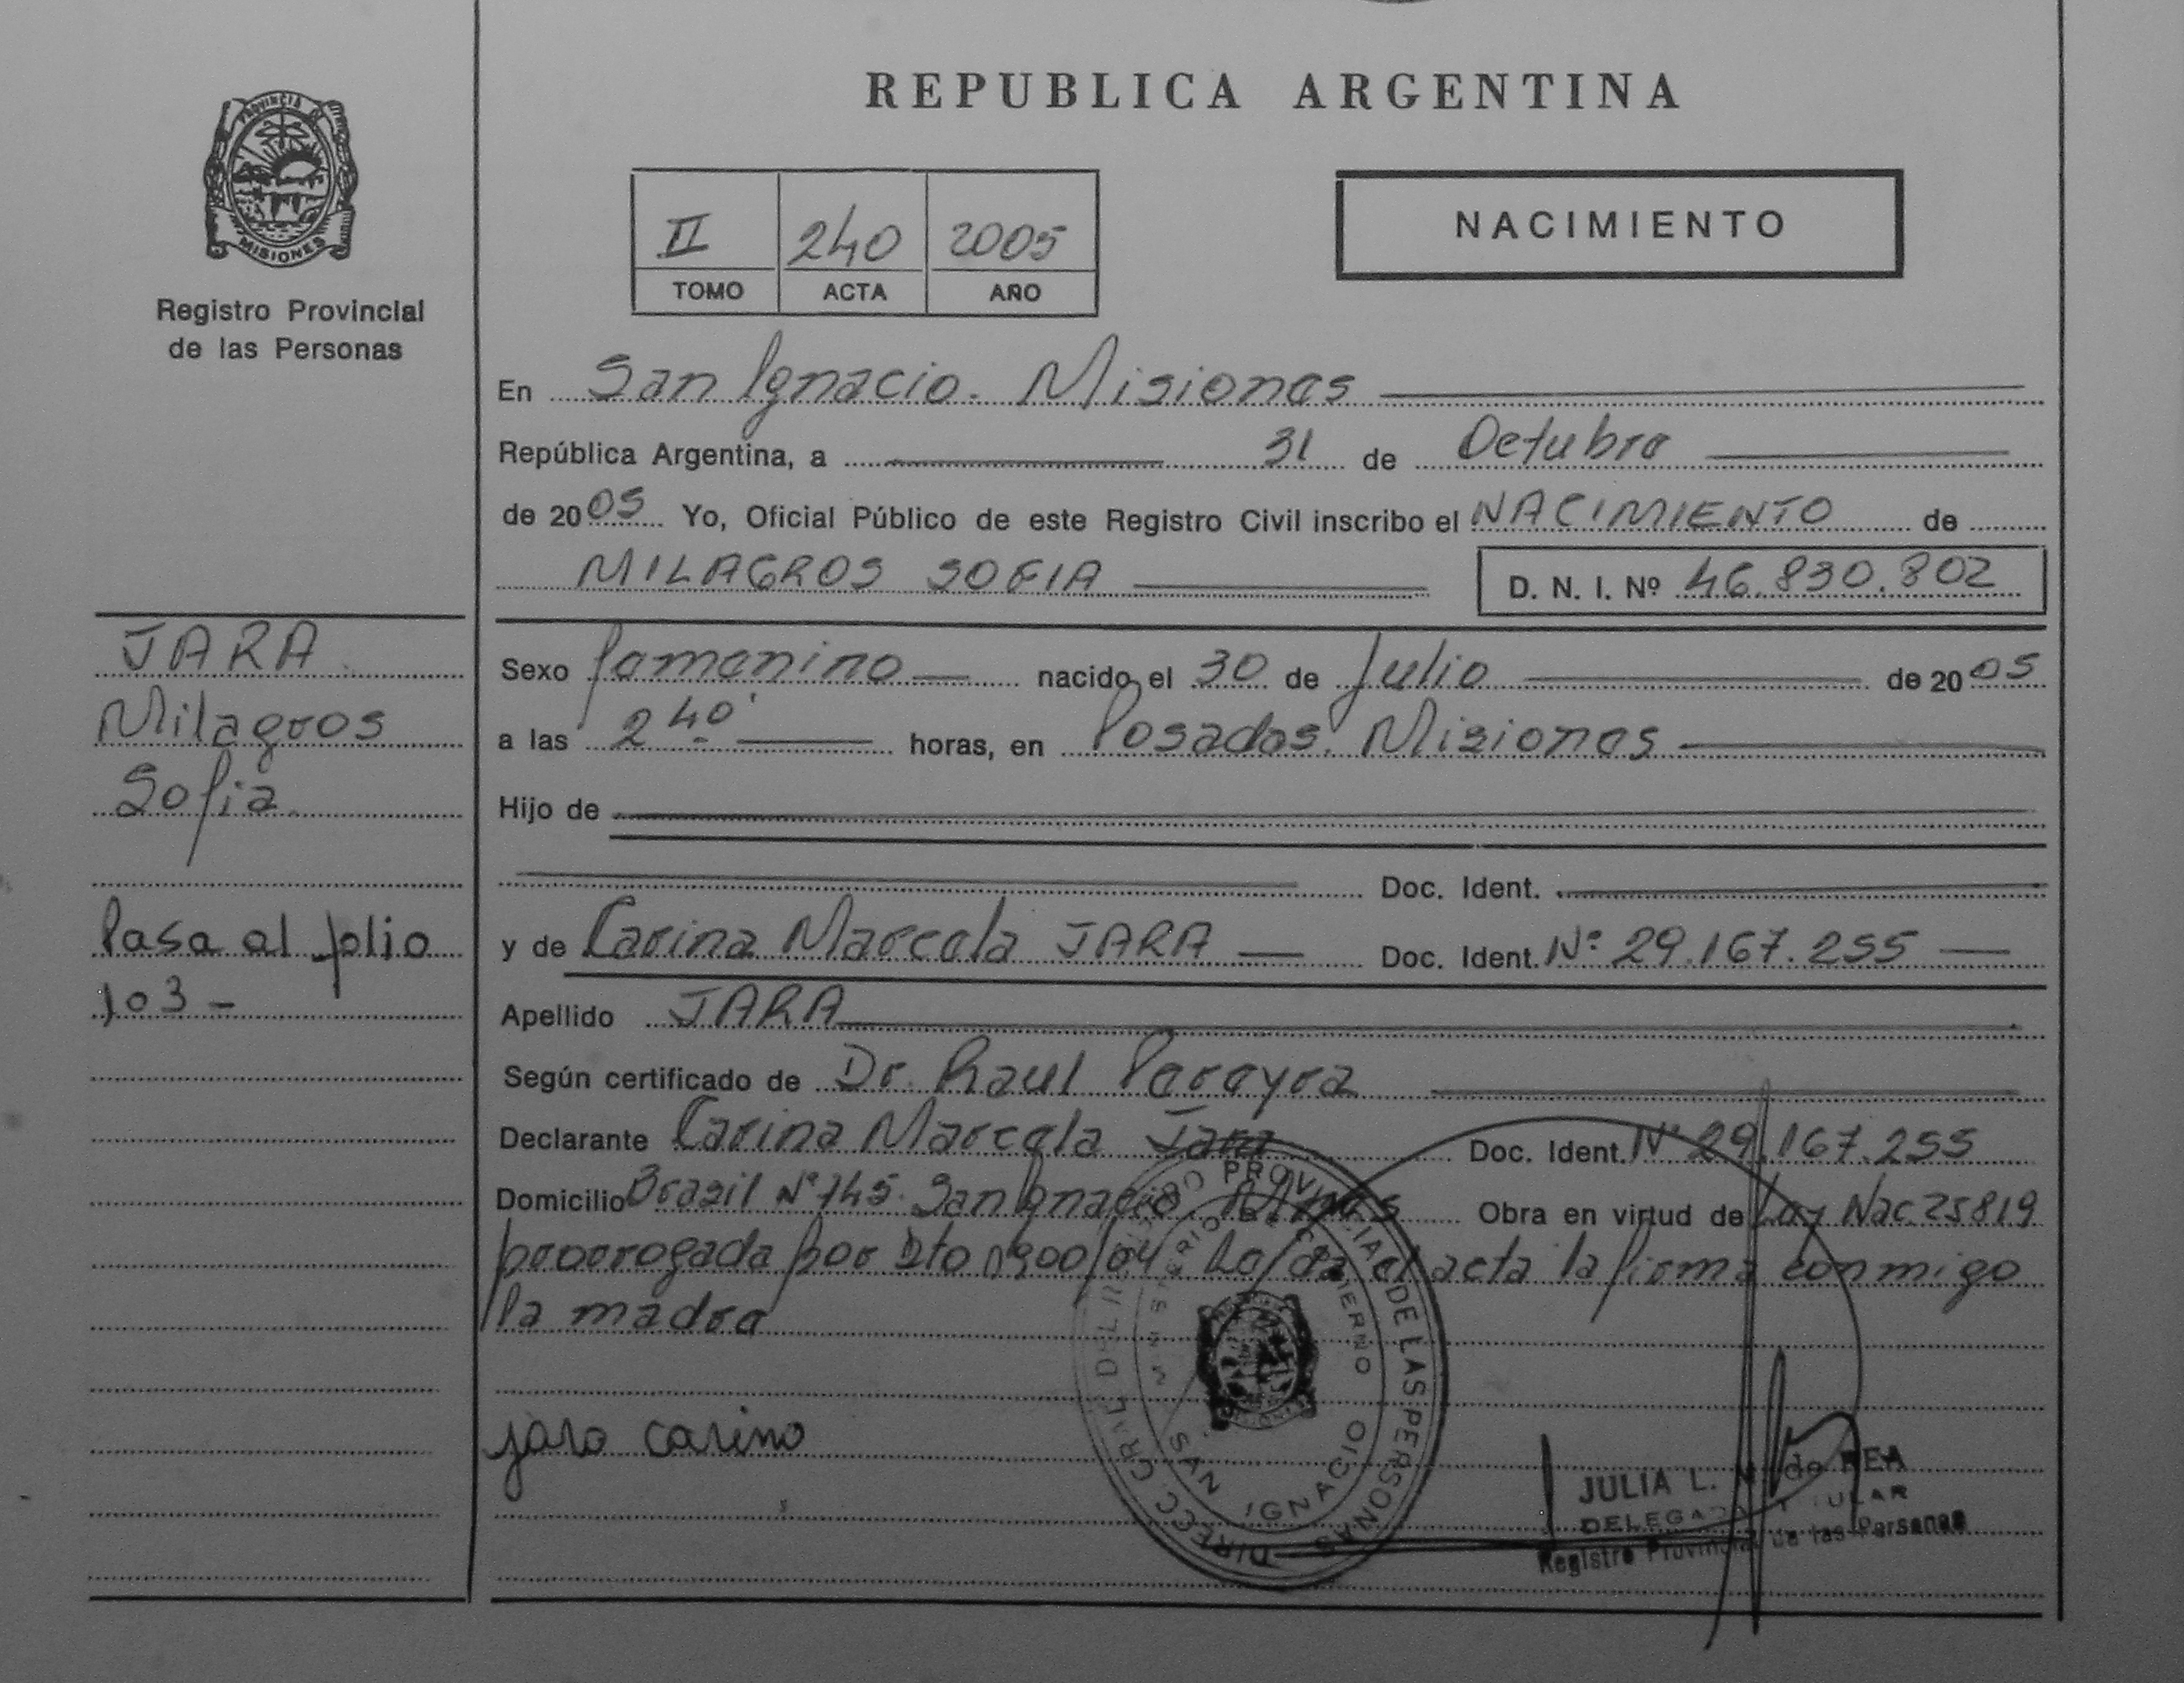 REPUBLICA ARGENTINA
PROVINCIA DE
MISIONES
Registro Provincial
de las Personas
II 240 2005
TOMO ACTA AÑO
NACIMIENTO
En San Ignacio. Misiones
República Argentina, a 31 de Octubre
de 2005 Yo, Oficial Público de este Registro Civil inscribo el NACIMIENTO de
MILAGROS SOFIA D. N. I. Nº 46.830.802
JARA
Milagros
Sofia
Pasa al folio
103 -
Sexo femenino nacido el 30 de Julio de 2005
a las 2 40' horas, en Posadas. Misiones
Hijo de
Doc. Ident.
y de Carina Marcela JARA Doc. Ident. Nº 29.167.255
Apellido JARA
Según certificado de Dr. Raul Pereyra
Declarante Carina Marcela Jara Doc. Ident. Nº 29.167.255
Domicilio Brasil Nº 745. San Ignacio Mnes Obra en virtud de Ley Nac 25819
prorrogada por Dto Leída el acta la firma conmigo
la madre
jara carina
REGISTRO PROVINCIAL DE LAS PERSONAS
MINISTERIO DE GOBIERNO
SAN IGNACIO
JULIA L. de REA
DELEGADA TITULAR
Registro Provincial de las Personas